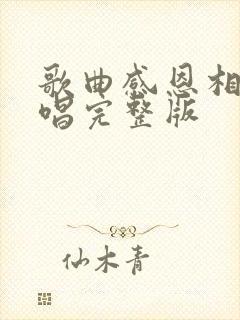 歌曲感恩相
唱完整版
仙木青